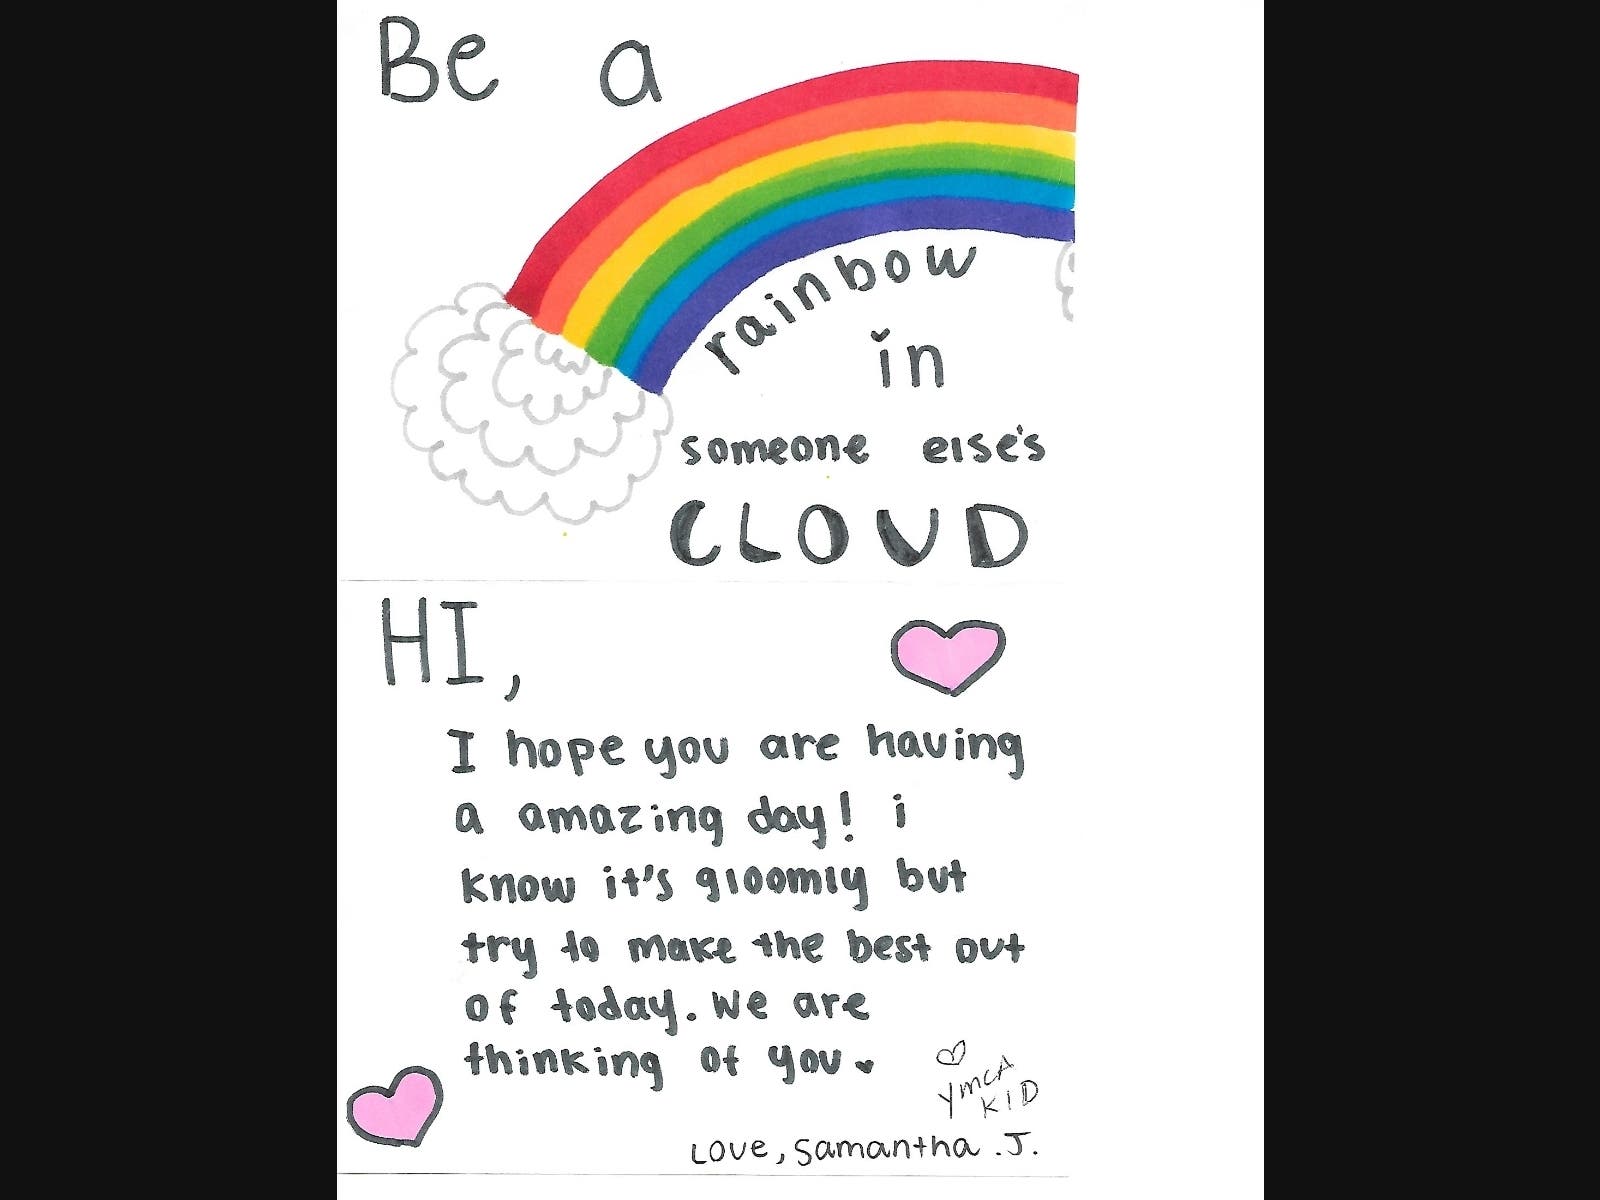 Be a
rainbow
in
someone else's
CLOUD
HI,
I hope you are having
a amazing day! i
know it's gloomly but
try to make the best out
of today. We are
thinking of you
YMCA
KID
Love, Samantha .J.